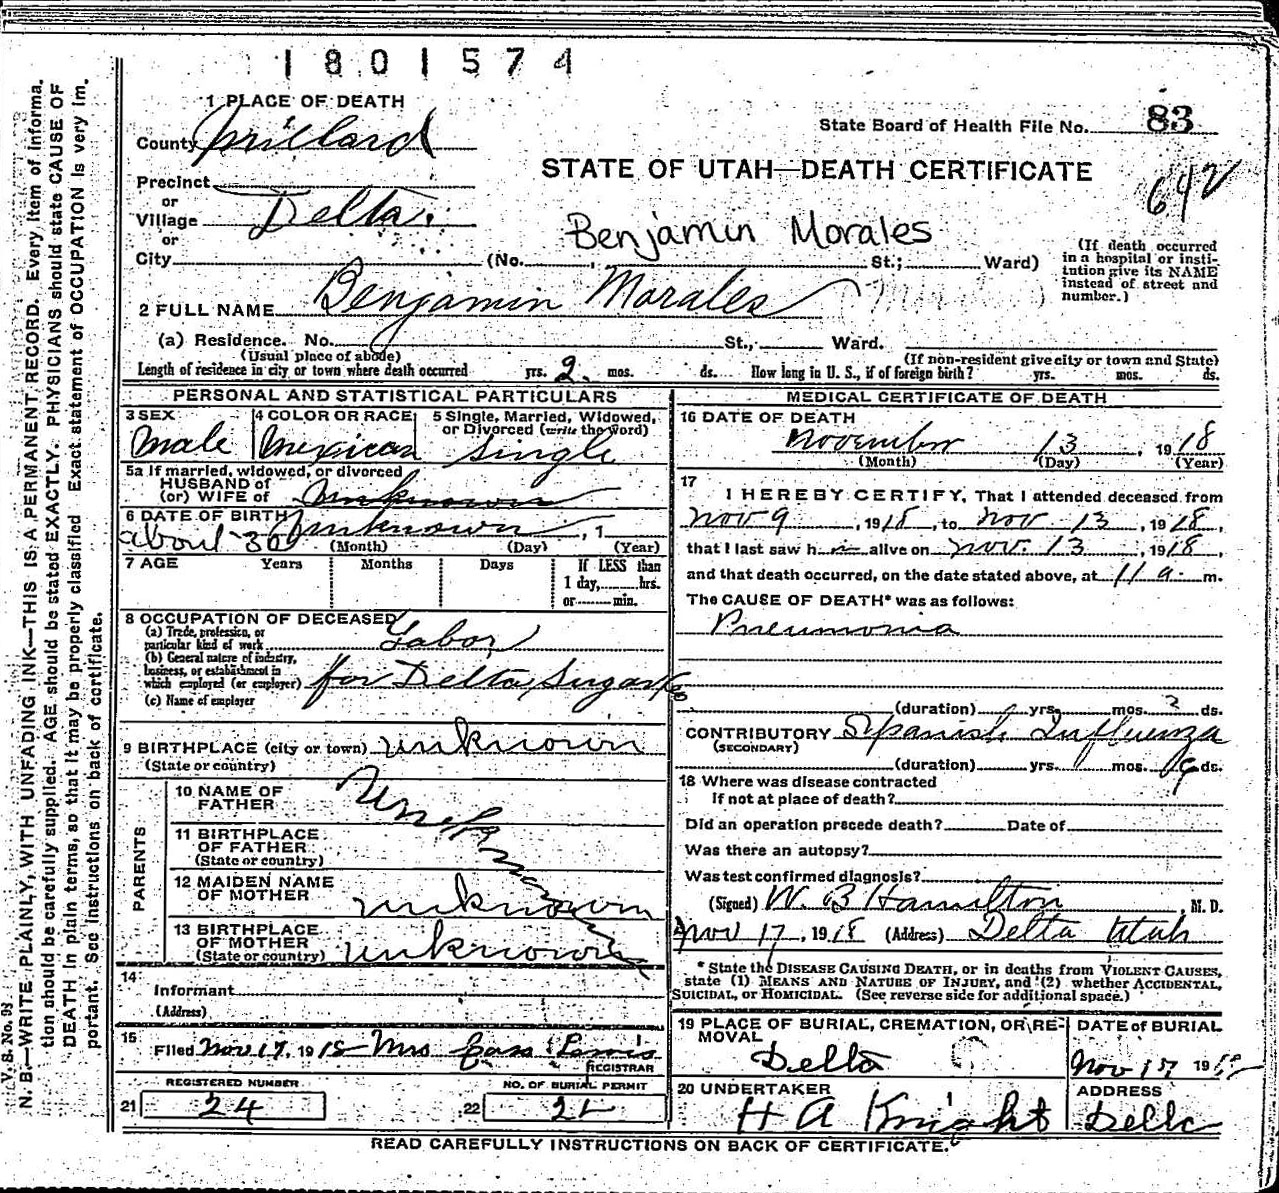 1801574
1 PLACE OF DEATH
County Millard
State Board of Health File No. 83
STATE OF UTAH—DEATH CERTIFICATE
642
Precinct
or
Village Delta.
or
Benjamin Morales
City (No. , St.; Ward)
(If death occurred
in a hospital or insti-
tution give its NAME
instead of street and
number.)
2 FULL NAME Benjamin Morales
(a) Residence. No. St., Ward.
(Usual place of abode) (If non-resident give city or town and State)
Length of residence in city or town where death occurred yrs. 2 mos. ds. How long in U. S., if of foreign birth? yrs. mos. ds.
PERSONAL AND STATISTICAL PARTICULARS
3 SEX 4 COLOR OR RACE 5 Single, Married, Widowed,
or Divorced (write the word)
Male Mexican Single
5a If married, widowed, or divorced
HUSBAND of
(or) WIFE of unknown
6 DATE OF BIRTH unknown , 1
about 30 (Month) (Day) (Year)
7 AGE Years Months Days If LESS than
1 day, hrs.
or min.
8 OCCUPATION OF DECEASED
(a) Trade, profession, or
particular kind of work Labor
(b) General nature of industry,
business, or establishment in
which employed (or employer) for Delta Sugar Co
(c) Name of employer
9 BIRTHPLACE (city or town) unknown
(State or country)
PARENTS
10 NAME OF
FATHER unknown
11 BIRTHPLACE
OF FATHER
(State or country)
12 MAIDEN NAME
OF MOTHER unknown
13 BIRTHPLACE
OF MOTHER
(State or country) unknown
14
Informant
(Address)
15
Filed Nov 17, 1918 Mrs Lewis
REGISTRAR
REGISTERED NUMBER NO. OF BURIAL PERMIT
21 24 22
MEDICAL CERTIFICATE OF DEATH
16 DATE OF DEATH
November 13 , 1918
(Month) (Day) (Year)
17
I HEREBY CERTIFY, That I attended deceased from
Nov 9 , 1918, to Nov 13 , 1918,
that I last saw h m alive on Nov. 13 , 1918,
and that death occurred, on the date stated above, at 11 a. m.
The CAUSE OF DEATH* was as follows:
Pneumonia
(duration) yrs. mos. 2 ds.
CONTRIBUTORY Spanish Influenza
(SECONDARY)
(duration) yrs. mos. 9 ds.
18 Where was disease contracted
If not at place of death?
Did an operation precede death? Date of
Was there an autopsy?
Was test confirmed diagnosis?
(Signed) W. B Hamilton , M. D.
Nov 17 , 1918 (Address) Delta Utah
* State the DISEASE CAUSING DEATH, or in deaths from VIOLENT CAUSES,
state (1) MEANS AND NATURE OF INJURY, and (2) whether ACCIDENTAL,
SUICIDAL, or HOMICIDAL. (See reverse side for additional space.)
19 PLACE OF BURIAL, CREMATION, OR RE- DATE of BURIAL
MOVAL
Delta Nov 17 1918
20 UNDERTAKER ADDRESS
H A Knight Delta
READ CAREFULLY INSTRUCTIONS ON BACK OF CERTIFICATE.
V. S. No. 93
N. B.—WRITE PLAINLY, WITH UNFADING INK—THIS IS A PERMANENT RECORD. Every item of informa-
tion should be carefully supplied. AGE should be stated EXACTLY. PHYSICIANS should state CAUSE OF
DEATH in plain terms, so that it may be properly classified. Exact statement of OCCUPATION is very im-
portant. See instructions on back of certificate.